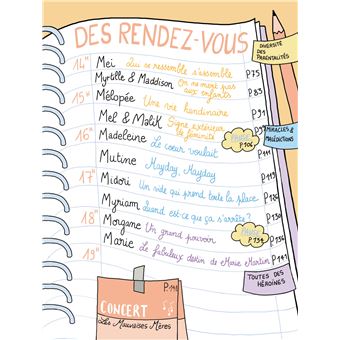 DES RENDEZ-VOUS
DIVERSITÉ DES PARENTALITÉS
14" Mei Qui se ressemble s'assemble P.75
Myrtille & Maddison On ne ment pas aux enfants P.83
15" Mélopée Une vie handinaire P.91
Mel & Malik Signe extérieur de féminité P.97
16" PAUSE P.106
MIRACLES & MALÉDICTIONS
Madeleine Le cœur voulait P.111
Mutine Mayday, Mayday P.119
17" Midori Un vide qui prend toute la place P.126
Myriam Quand est-ce que ça s'arrête ?
18" PAUSE P.134
Morgane Un grand pouvoir P.136
19" Marie Le fabuleux destin de Marie Martin P.141
TOUTES DES HÉROÏNES
P.148
CONCERT
Les Mauvaises Mères